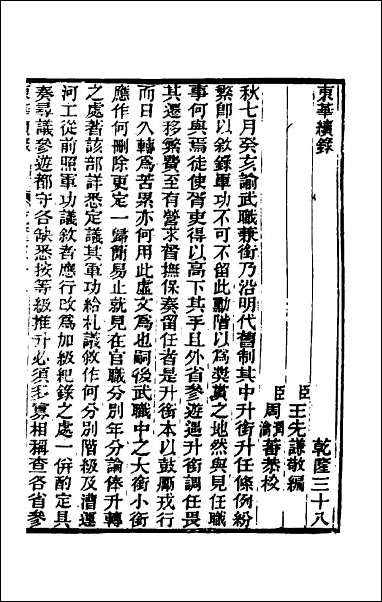 東華續錄
乾隆三十八
臣王先謙敬編
臣周潤蕃恭校
秋七月癸亥諭武職兼銜乃沿明代舊制其中升銜升任條例紛
繁即以敘錄軍功不可不留此勳階以為獎賞之地然與見任職
事何與焉徒使胥吏得以高下其手且外省參遊遇升銜調任畏
其遷移繁費至有營求督撫保奏留任者是升銜本以鼓勵戎行
而日久轉為苦累亦何用此虛文為也嗣後武職中之大銜小銜
應作何刪除更定一歸簡易止就見在官職分別年分論俸升轉
之處著該部詳悉定議其軍功給札議敘作何分別階級及漕運
河工從前照軍功議敘者應行改為加級紀錄之處一併酌定具
奏尋議參遊都守各缺悉按等級推升必須多寡相稱查各省參